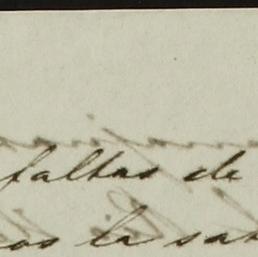 faltas de
os la sat